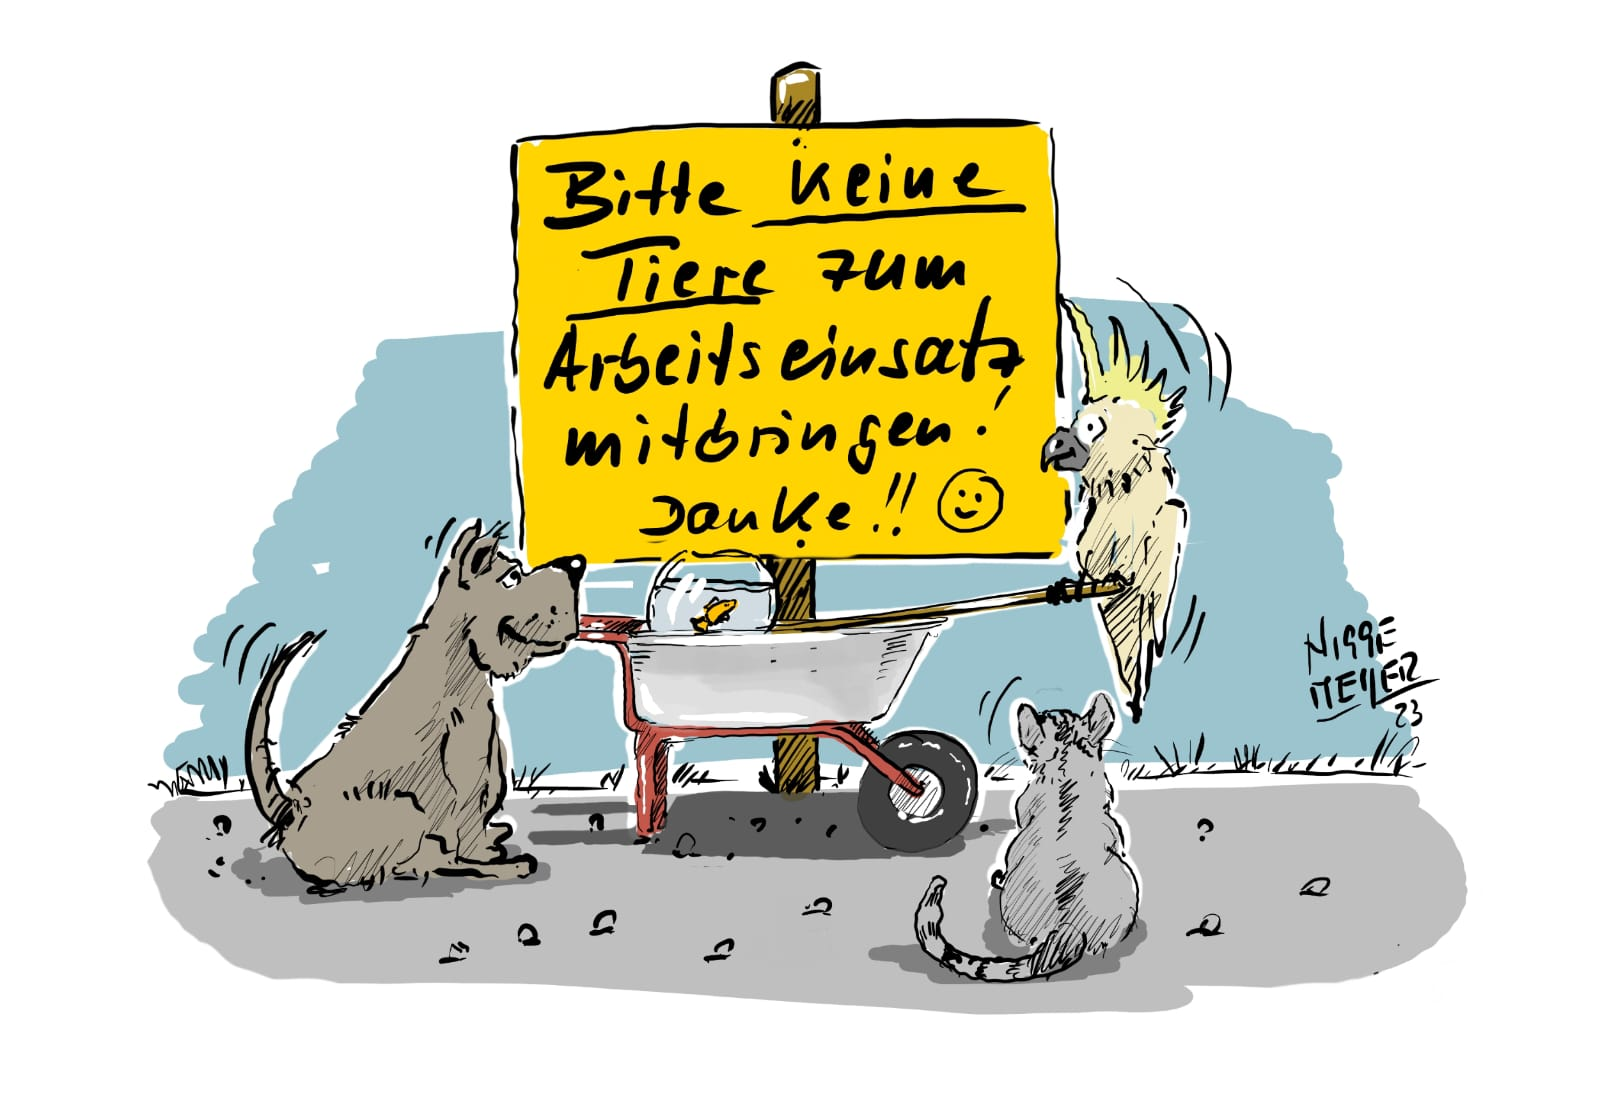 Bitte keine
Tiere zum
Arbeitseinsatz
mitbringen!
Danke!!
NIGGE
MEYER
23